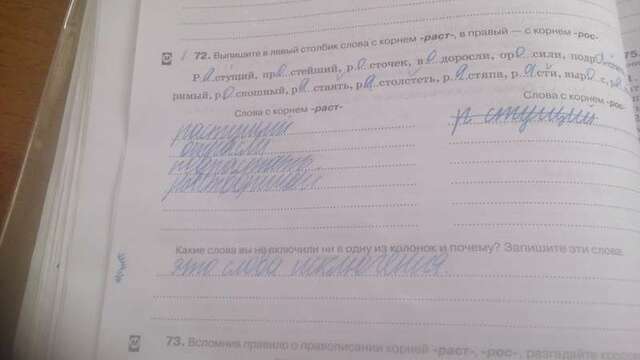 72. Выпишите в левый столбик слова с корнем -раст-, в правый — с корнем -рос-.
Р а стущий, пр о стейший, р о сточек, в о доросли, ор о сили, подр
римый, р о скошный, р а стаять, р а столстеть, р а стяпа, р а сти, выр о с, р
Слова с корнем -раст-
Слова с корнем -рос-
растущий
р стущий
Какие слова вы не включили ни в одну из колонок и почему? Запишите эти слова.
это слова исключения
73. Вспомнив правило о правописании корней -раст-, -рос-, разгадайте